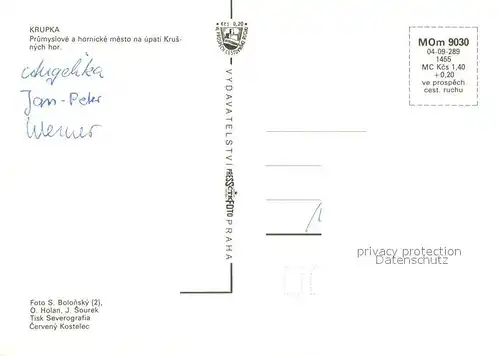 KRUPKA
Průmyslové a hornické město na úpatí Kruš-
ných hor.
Angelika
Jan-Peter
Werner
Kčs 0,20
VYDAVATELSTVÍ PRESSFOTO PRAHA
MOm 9030
04-09-289
1455
MC Kčs 1,40
+0,20
ve prospěch
cest. ruchu
privacy protection
Datenschutz
Foto S. Boloňský (2),
O. Holan, J. Šourek
Tisk Severografia
Červený Kostelec